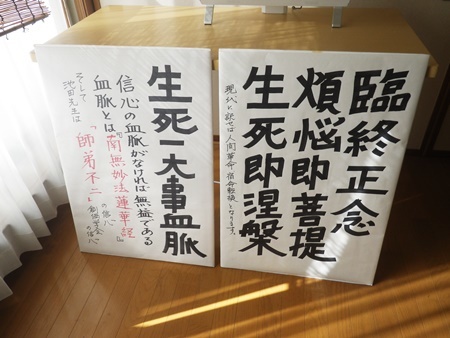 臨終正念
煩悩即菩提
生死即涅槃
現代に訳せば人間革命・宿命転換となります。
生死一大事血脈
信心の血脈がなければ無益である
血脈とは『南無妙法蓮華経』
の信心
そして
池田先生は「師弟不二」
創価学会
の信心